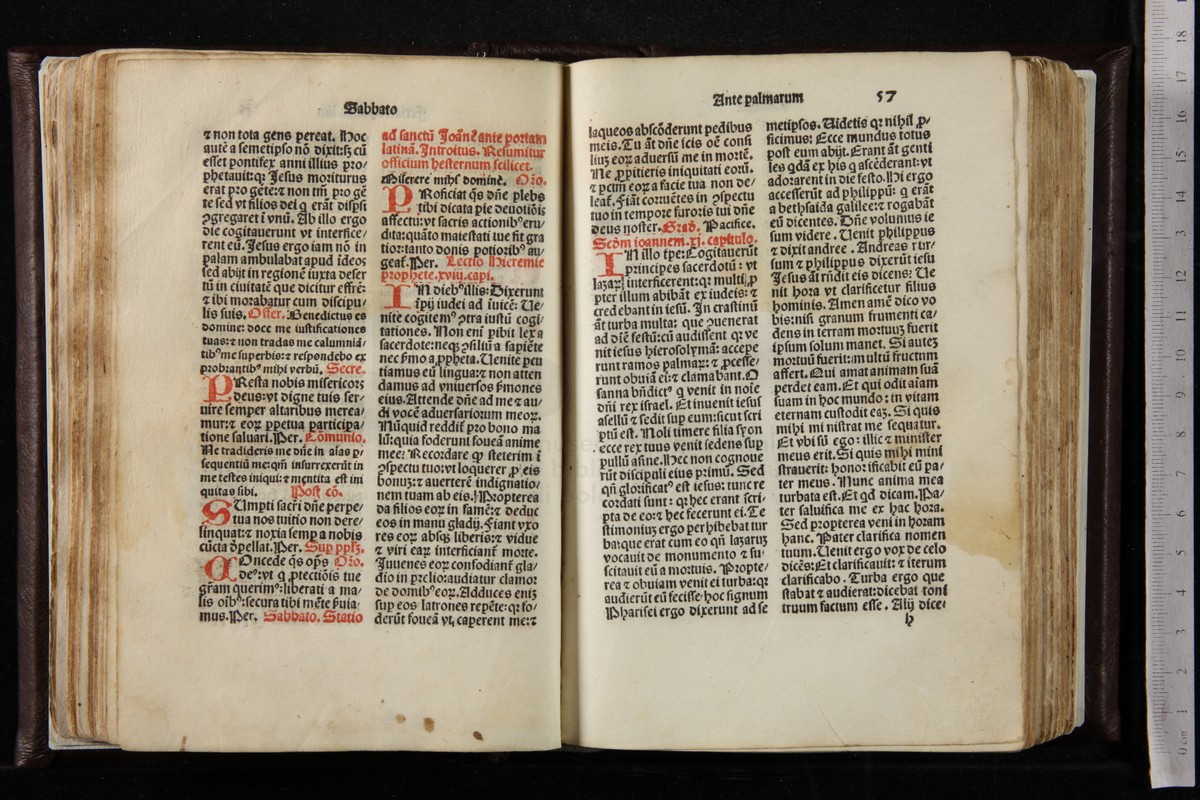 Sabbato
⁊ non tota gens pereat. Hoc
autē a semetipso nō dixit:sȝ cū
esset pontifex anni illius pro/
phetauit:qꝛ Jesus moriturus
erat pro gēte:⁊ non tm̄ pro gē
te sed vt filios dei q̇ erāt disp̄si
ꝯgregaret ī vnū. Ab illo ergo
die cogitauerunt vt interfice/
rent eū. Jesus ergo iam nō in
palam ambulabat apud iudeos
sed abijt in regionē iuxta deser
tū in ciuitatē que dicitur effrē:
⁊ ibi morabatur cum discipu/
lis suis. Offer. Benedictus es
domine: doce me iustificationes
tuas:⁊ non tradas me calumniā/
tibꝰ me superbis:⁊ respondebo ex
probrantibꝰ mihi verbū. Secre.
PResta nobis misericorȝ
deus:vt digne tuis ser/
uire semper altaribus merea/
mur:⁊ eoꝝ ꝑpetua participa/
tione saluari.Per. Cōmunio.
Ne tradideris me dn̄e in aīas ꝑ/
sequentiū me:qm̄ insurrexerūt in
me testes iniqui:⁊ mentita est ini
quitas sibi. Post cō.
SUmpti sacri dn̄e perpe/
tua nos tuitio non dere/
linquat:⁊ noxia semꝑ a nobis
cūcta d̄pellat.Per. Sup pp̄lȝ.
COncede q̄s op̄s Oro.
deꝰ:vt q̇ ꝓtectiōis tue
gr̄am querimꝰ:liberati a ma/
lis oībꝰ:secura tibi mēte ẜuia/
mus.Per. Sabbato. Statio
ad sanctū Joānē ante portam
latinā. Introitus. Resumitur
officium hesternum scilicet.
Miserere mihi dominē. Oro.
PRoficiat q̄s dn̄e plebs
tibi dicata pie deuotiōis
affectu:vt sacris actionibꝰ eru/
dita:quāto maiestati tue fit gra
tior:tanto donis potioribꝰ au/
geat̄.Per. Lectio Hieremie
prophete.xviij.capi.
IN diebꝰ illis: Dixerunt
īpij iudei ad īuicē: Ue/
nite cogitemꝰ ꝯtra iustū cogi/
tationes. Non enī ꝑibit lex a
sacerdote:neqȝ ꝯsiliū a sapiēte
nec ẜmo a ꝓpheta. Uenite ꝑcu
tiamus eū lingua:⁊ non atten
damus ad vniuersos ẜmones
eius. Attende dn̄e ad me ⁊ au/
di vocē aduersariorum meoꝝ.
Nūquid reddit̄ pro bono ma
lū:quia foderunt foueā anime
mee: Recordare ꝙ steterim ī
ꝯspectu tuo:vt loquerer ꝓ eis
bonuȝ:⁊ auerterē indignatio/
nem tuam ab eis. Propterea
da filios eoꝝ in famē:⁊ deduc
eos in manu gladij. Fiant vxo
res eoꝝ absqȝ liberis:⁊ vidue
⁊ viri eaꝝ interficiant̄ morte.
Juuenes eoꝝ confodiant̄ gla/
dio in prelio:audiatur clamor
de domibꝰ eoꝝ. Adduces eniȝ
sup eos latrones repēte:qꝛ fo/
derūt foueā vt caperent me:⁊
Ante palmarum 57
laqueos abscōderunt pedibus
meis. Tu āt dn̄e scis oē consi
liuȝ eoꝝ aduersū me in mortē.
Ne ꝓpitieris iniquitati eorū.
⁊ pctm̄ eoꝝ a facie tua non de/
leat̄. Fiāt corruētes in ꝯspectu
tuo in tempore furoris tui dn̄e
deus noster. Grad. Pacifice.
Scd̄m ioannem.xj. capitulo.
IN illo tp̄e: Cogitauerūt
principes sacerdotū: vt
lazaꝝ interficerent:qꝛ multi ꝓ
pter illum abibāt ex iudeis: ⁊
credebant in iesū. In crastinū
āt turba multa: que ꝯuenerat
ad diē festū:cū audissent qꝛ ve
nit iesus hierosolymā: accepe
runt ramos palmaꝝ: ⁊ ꝓcesse/
runt obuiā ei:⁊ clamabant. O
sanna bn̄dictꝰ q̇ venit in noīe
dn̄i rex israel. Et inuenit iesus
asellū ⁊ sedit sup eum:sicut scri
ptū est. Noli timere filia syon
ecce rex tuus venit sedens sup
pullū asine. Hec non cognoue
rūt discipuli eius primū. Sed
qn̄ glorificatꝰ est iesus: tunc re
cordati sunt: qꝛ hec erant scri/
pta de eo:⁊ hec fecerunt ei. Te
stimoniuȝ ergo perhibebat tur
ba:que erat cum eo qn̄ lazarū
vocauit de monumento ⁊ su/
scitauit eū a mortuis. Propte/
rea ⁊ obuiam venit ei turba:qꝛ
audierūt eū fecisse hoc signum
Pharisei ergo dixerunt ad se
metipsos. Uidetis qꝛ nihil ꝓ/
ficimus: Ecce mundus totus
post eum abijt. Erant āt genti
les q̇dā ex his q̇ ascēderant:vt
adorarent in die festo. Hi ergo
accesserūt ad philippū: q̇ erāt
a bethsaida galilee:⁊ rogabāt
eū dicentes. Dn̄e volumus ie
sum videre. Uenit philippus
⁊ dixit andree. Andreas rur/
sum ⁊ philippus dixerūt iesu
Jesus āt rn̄dit eis dicens: Ue
nit hora vt clarificetur filius
hominis. Amen amē dico vo
bis:nisi granum frumenti ca/
dens in terram mortuuȝ fuerit
ipsum solum manet. Si auteȝ
mortuū fuerit:multū fructum
affert. Qui amat animam suā
perdet eam. Et qui odit aīam
suam in hoc mundo: in vitam
eternam custodit eaȝ. Si quis
mihi ministrat me sequatur.
Et vbi sū ego: illic ⁊ minister
meus erit. Si quis mihi mini
strauerit: honorificabit eū pa/
ter meus. Nunc anima mea
turbata est. Et qd dicam. Pa/
ter saluifica me ex hac hora.
Sed propterea veni in horam
hanc. Pater clarifica nomen
tuum. Uenit ergo vox de celo
dicēs: Et clarificauit: ⁊ iterum
clarificabo. Turba ergo que
stabat ⁊ audierat:dicebat toni
truum factum esse. Alij dice/
h